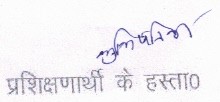 प्रशिक्षणार्थी के हस्ता०